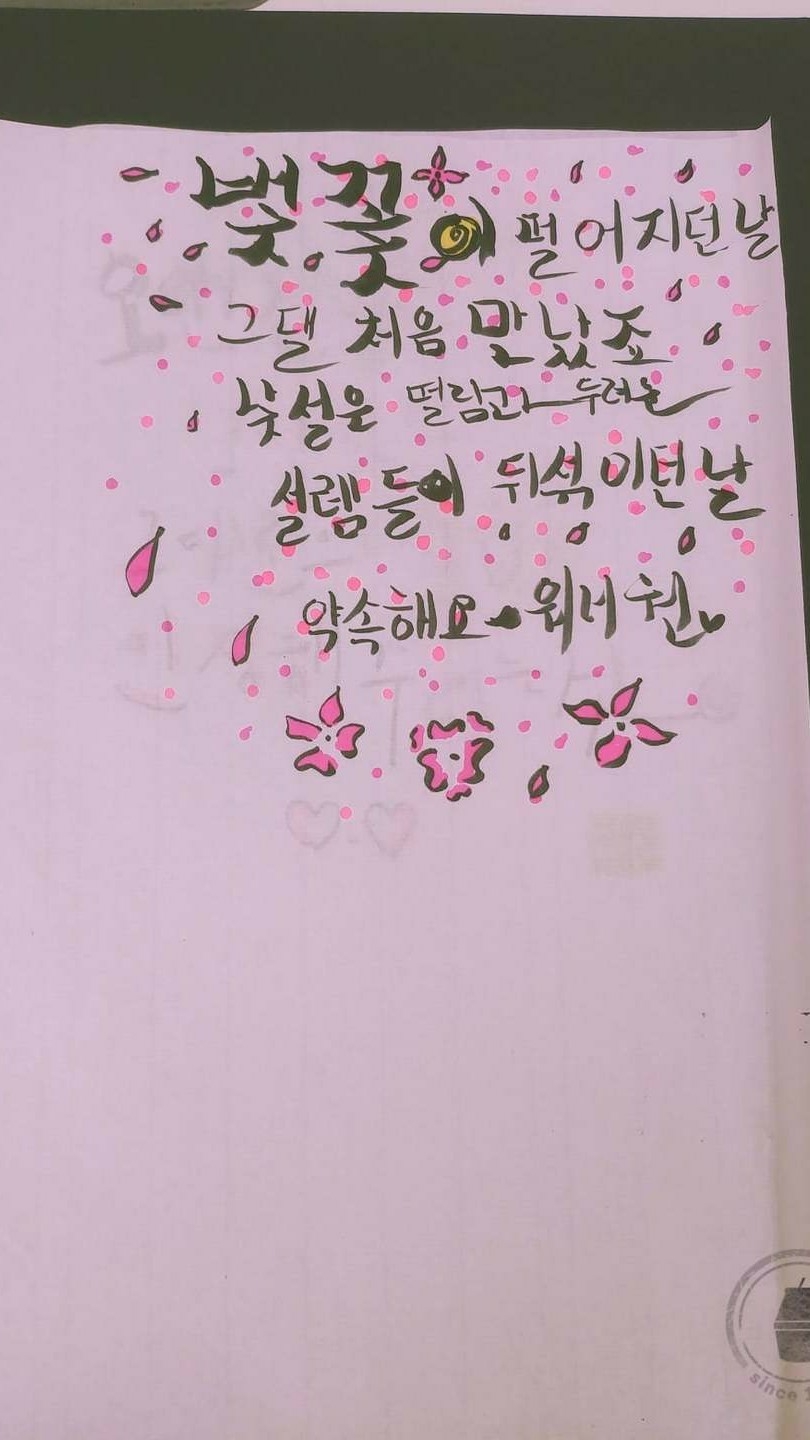 벚꽃이 떨어지던 날
그댈 처음 만났죠
낯설은 떨림과 두려운
설렘들이 뒤섞이던 날
약속해요 - 워너원
since